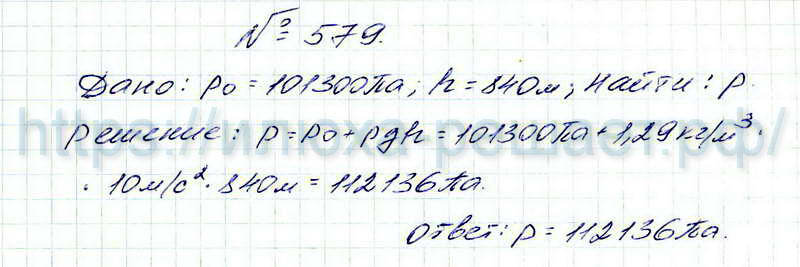 № 579.
Дано: p₀ = 101300Па; h = 840м; Найти: p.
Решение: p = p₀ + ρgh = 101300Па + 1,29кг/м³ ·
· 10м/с² · 840м = 112136Па.
Ответ: p = 112136Па.